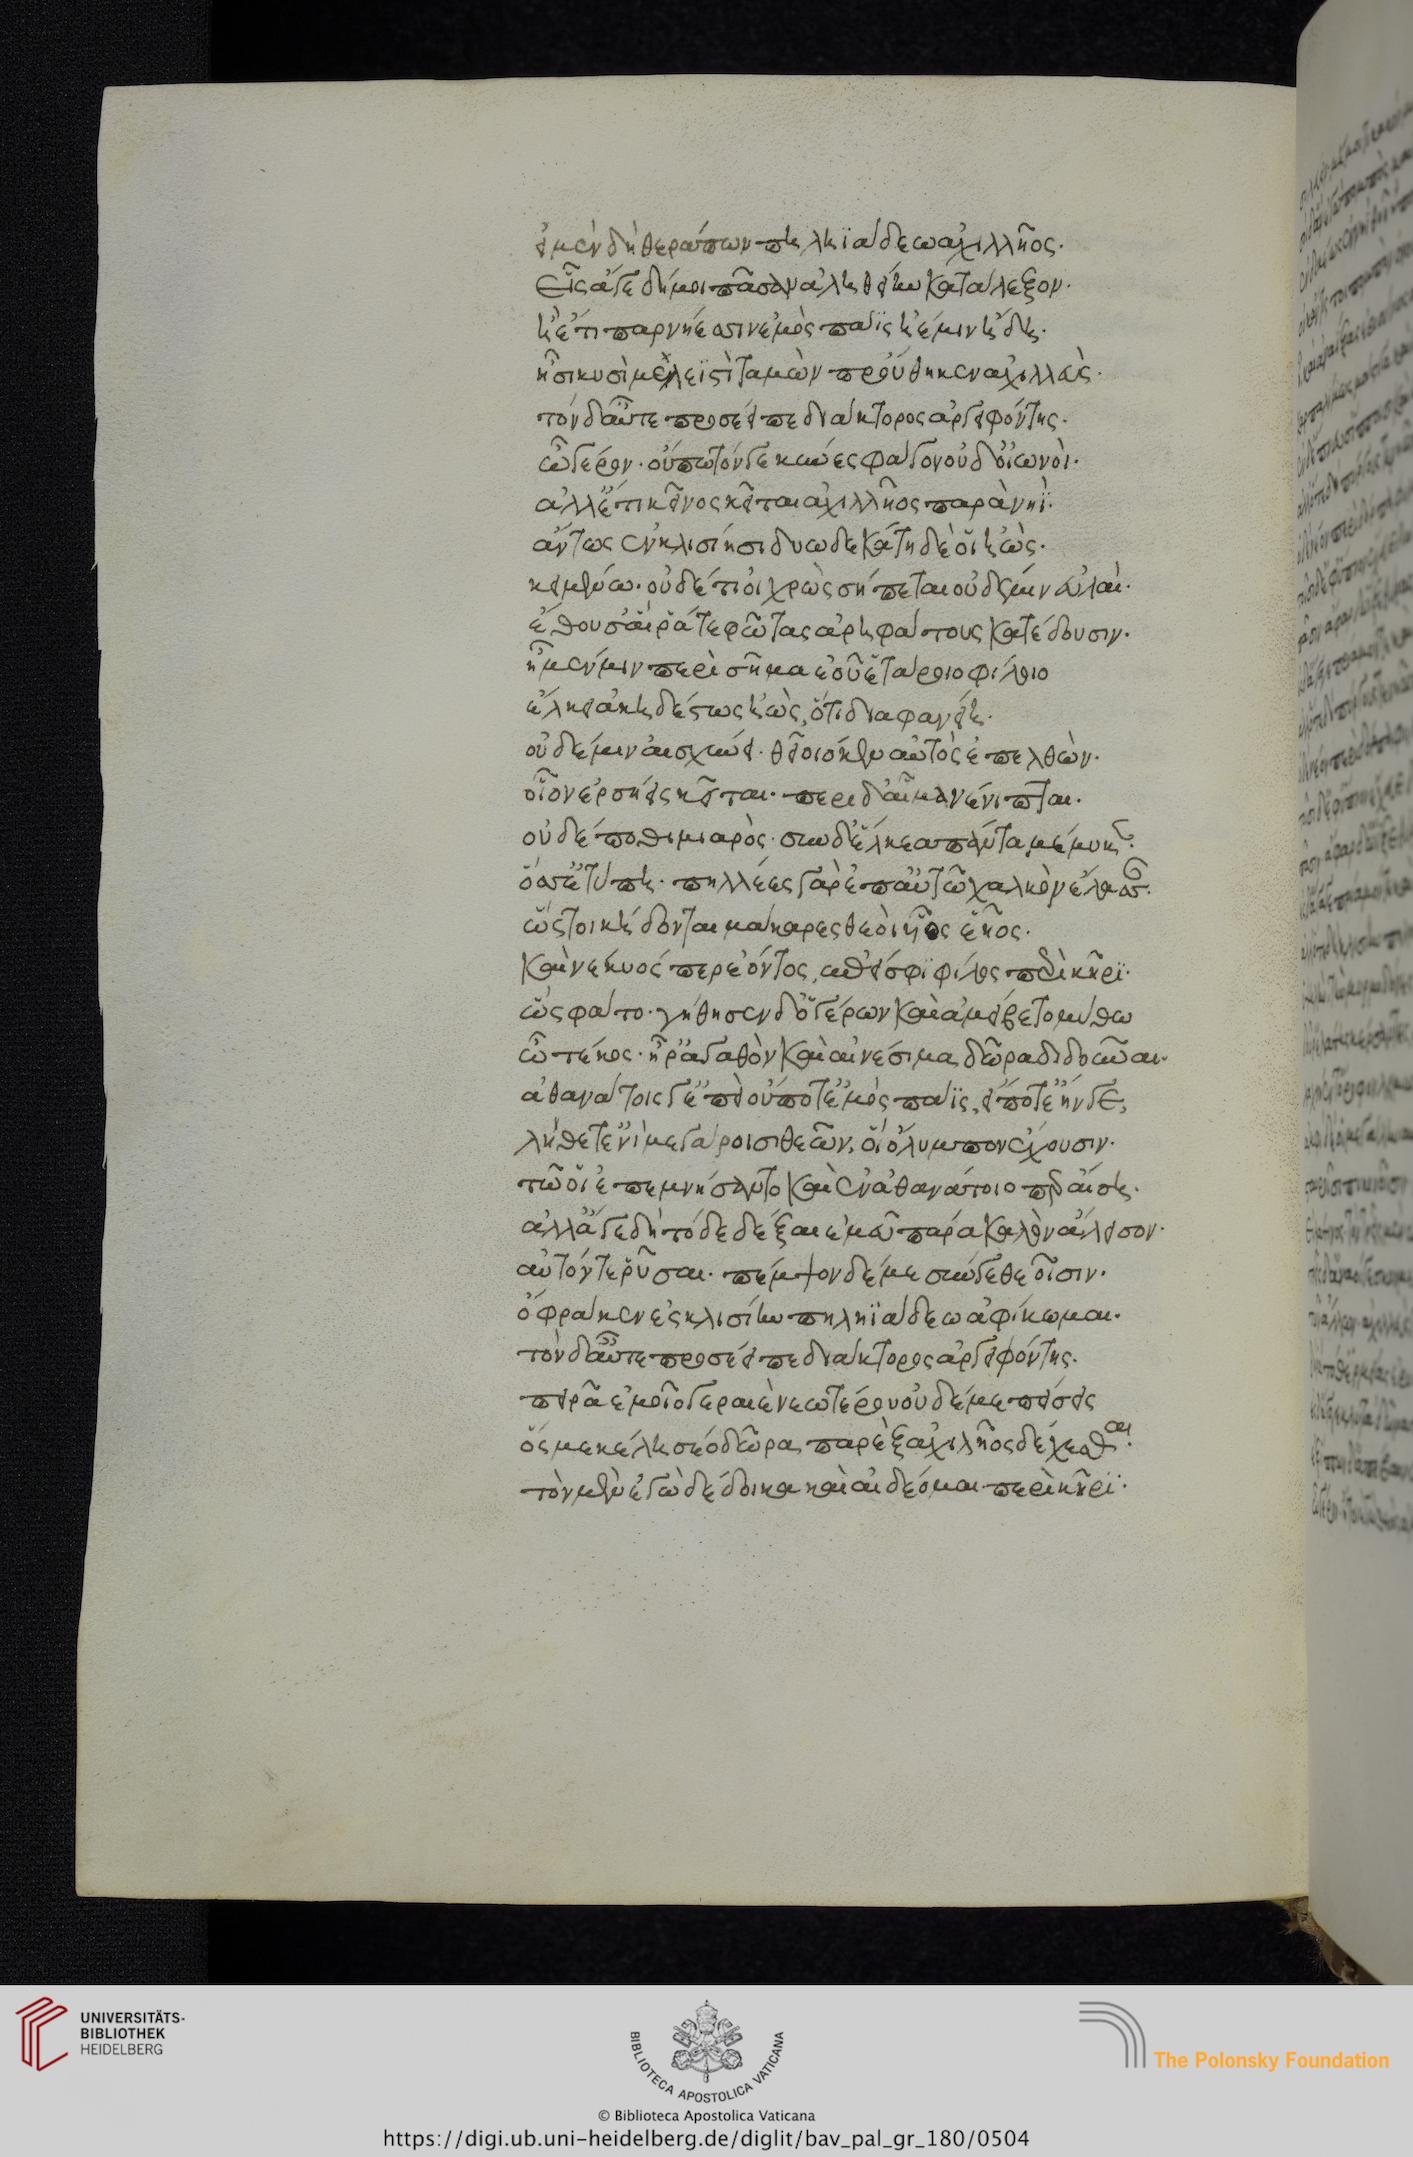 εἰ μὲν δὴ θεράπων πηληϊάδεω ἀχιλλῆος.
εἶς ἄγε δή μοι πᾶσαν ἀληθείην κατάλεξον.
ἢ ἔτι παρ νήεσσιν ἐμὸς πάϊς ἠέ μιν ἤδη.
ᾗσι κυσὶ μελεϊστὶ ταμὼν προύθηκεν ἀχιλλεὺς.
τόν δ αὖτε προσέειπε διάκτορος ἀργειφόντης.
ὦ γέρον· οὔπω τόν γε κύνες φάγον οὐδ οἰωνοὶ.
ἀλλ ἔτι κεῖνος κεῖται ἀχιλλῆος παρὰ νηῒ.
αὔτως ἐν κλισίησι δυωδεκάτη δὲ οἱ ἠὼς.
κειμένω· οὐδέ τι οἱ χρὼς σήπεται οὐδέ μιν εὐλαὶ.
ἔσθουσ αἵ ῥά τε φῶτας ἀρηφάτους κατέδουσιν.
ἦ μέν μιν περὶ σῆμα ἑοῦ ἑτάροιο φίλοιο
ἕλκει ἀκηδέστως ἠὼς, ὅτι δῖα φανείη.
οὐδέ μιν αἰσχύνει· θειοῖό κεν αὐτὸς ἐπελθὼν.
οἷον ἐρσήεις κεῖται· περι δ αἷμα νένιπται.
οὐδέ ποθι μιαρὸς· συν δ ἕλκεα πάντα μέμυκεν.
ὅσσ ἐτύπη· πολλέες γὰρ ἐπ αὐτῶ χαλκὸν ἔλασσαν.
ὥς τοι κήδονται μάκαρες θεοὶ υἷος ἑῆος.
καὶ νέκυός περ ἐόντος, ἐπεί σφι φίλος περὶ κῆρϊ.
ὣς φάτο· γήθησεν δ ὁ γέρων καὶ ἀμείβετο μύθω
ὦ τέκος· ἦ ῥ ἀγαθὸν καὶ αἰνέσιμα δῶρα διδοῦναι.
ἀθανάτοις ἐπεὶ οὔποτ ἐμὸς πάϊς, εἴποτ ἔην γε,
λήθετ ἐνὶ μεγάροισι θεῶν, οἳ ὄλυμπον ἔχουσιν.
τῶ οἱ ἐπεμνήσαντο καὶ ἐν θανάτοιο περ αἴση.
ἀλλ ἄγε δὴ τόδε δέξαι ἐμεῦ πάρα καλὸν ἄλεισον.
αὐτόν τε ῥῦσαι· πέμψον δέ με σύν γε θεοῖσιν.
ὄφρα κεν ἐς κλισίην πηληϊάδεω ἀφίκωμαι.
τὸν δ αὖτε προσέειπε διάκτορος ἀργειφόντης.
πειρᾶ ἐμοῖο γεραιὲ νεωτέρου οὐδέ με πείσεις
ὅς με κέλη σέο δῶρα παρὲξ ἀχιλῆος δέχεσθαι.
τὸν μὲν ἐγὼ δέδοικα καὶ αἰδέομαι περὶ κῆρϊ.
UNIVERSITÄTS-
BIBLIOTHEK
HEIDELBERG
BIBLIOTECA APOSTOLICA VATICANA
The Polonsky Foundation
© Biblioteca Apostolica Vaticana
https://digi.ub.uni-heidelberg.de/diglit/bav_pal_gr_180/0504